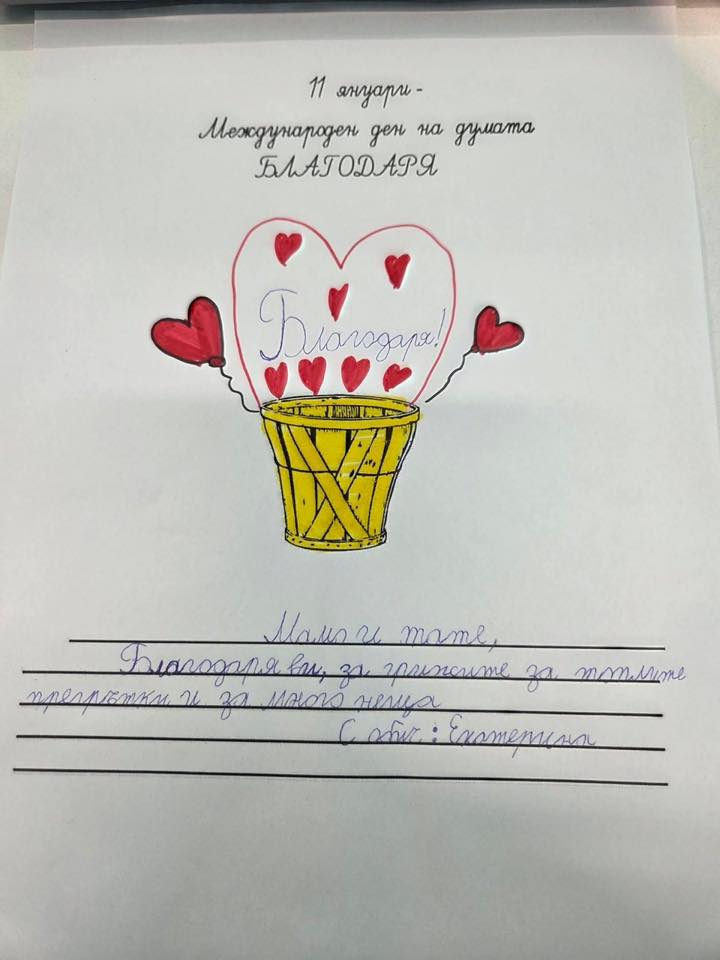 11 януари -
Международен ден на думата
БЛАГОДАРЯ
Благодаря!
Мамо и тате,
Благодаря ви, за грижите за топлите
прегрътки и за много неща
С обич: Екатерина